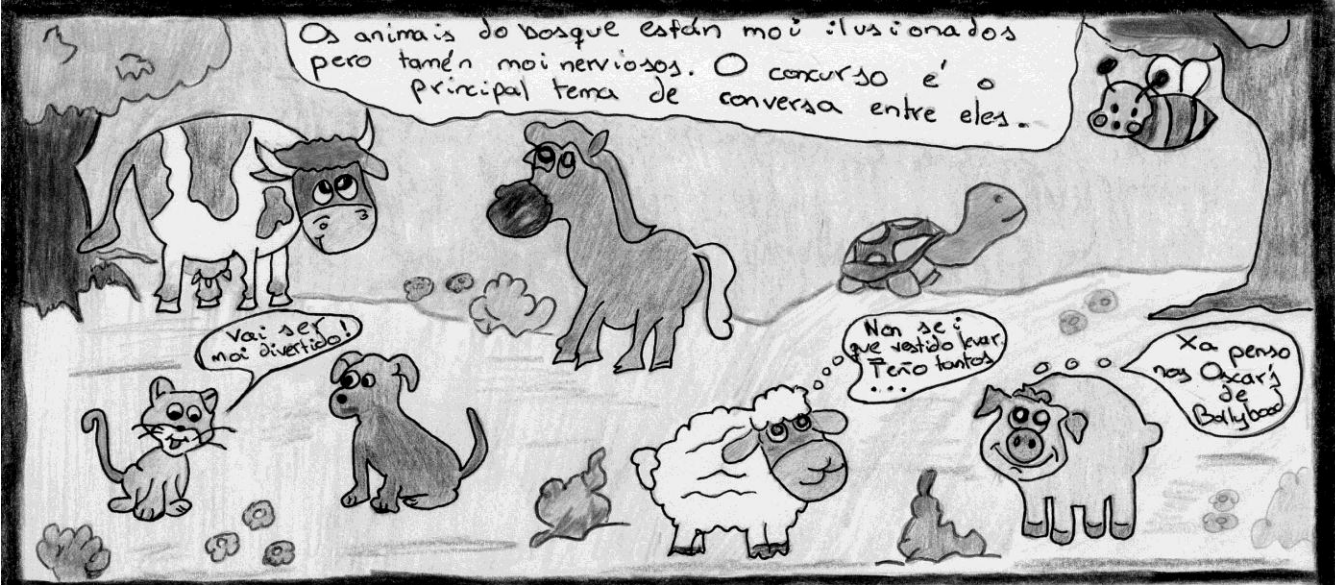 Os animais do bosque están moi ilusionados
pero tamén moi nerviosos. O concurso é o
principal tema de conversa entre eles.
Vai ser
moi divertido!
Non sei
que vestido levar.
Teño tantos
...
Xa penso
nos Oscar's
de
Bollybood